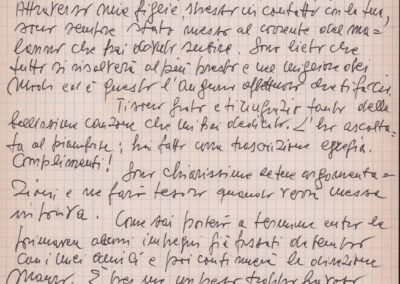 Attraverso mia figlia, stesso in contatto con la tua,
sono sempre stato messo al corrente del ma=
lanno che hai dovuto subire. Sono lieto che
tutto si risolverà al più presto e nel migliore dei
modi ed è questo l'augurio affettuoso che ti faccio.
Ti sono grato e ti ringrazio tanto della
bellissima canzone che mi hai dedicato. L'ho ascolta=
ta al pianoforte: hai fatto una trascrizione egregia.
Complimenti!
Sono chiarissime le tue argomenta=
zioni e ne farò tesoro quando verrà messa
in prova. Come sai porterò a termine entro la
primavera alcuni impegni già fissati da tempo
con i miei amici e poi continuerà la direzione
Mauro. È per me un peso troppo